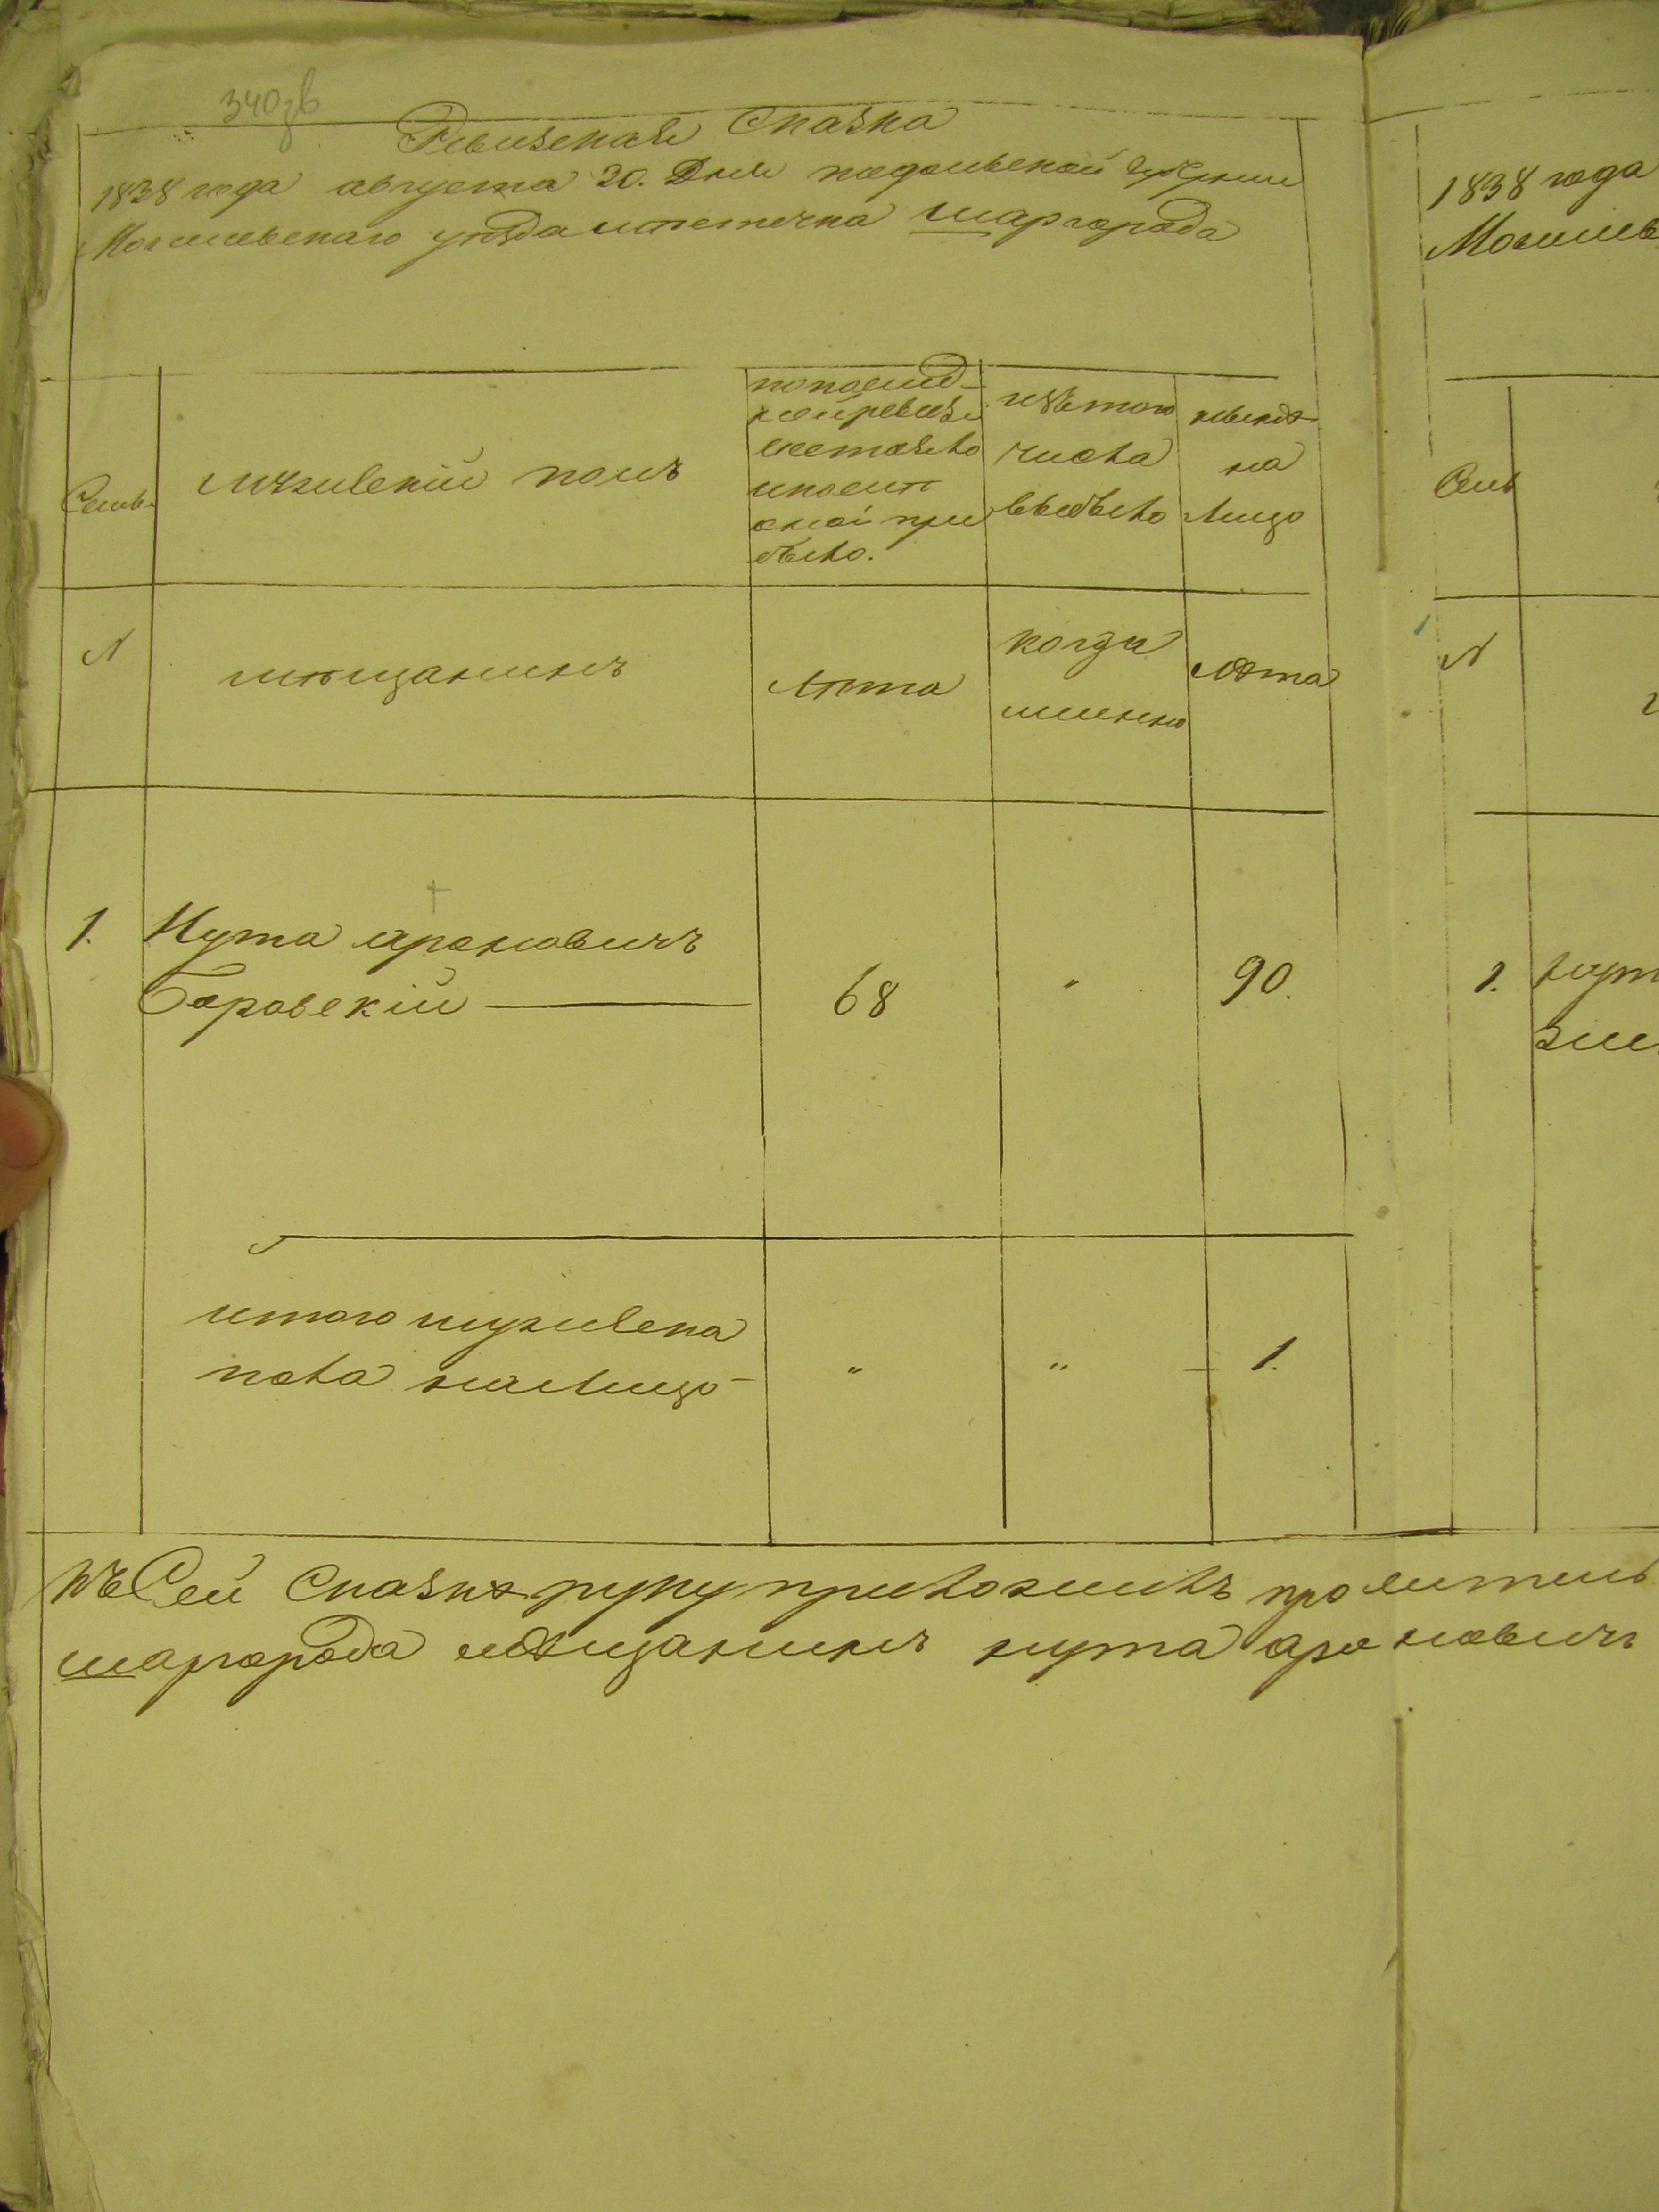 340зв
Ревизская Сказка
1838 года августа 20. Дня подольской губернии
Могилевскаго уезда местечка шаргорода
Семьи
мужескій полъ
попослед-
ней ревизіи
состояло
ипослѣ
оной при
было.
изътого
числа
выбыло
нынѣ
на
лицо
N
мѣщанинъ
лѣта
когда
имѣнно
лѣта
1. Нута ароновичъ
Боровскій 68 " 90.
итого мужеска
пола налицо - " " 1.
Къ Сей Сказкѣ руку приложилъ
шаргорода мѣщанинъ нута ароновичъ
1838 года
Могилев
Семь
N
1. нут